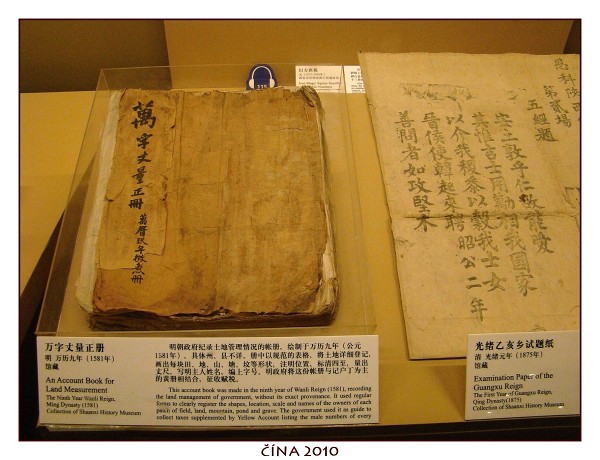 萬字丈量正冊
萬曆玖年做魚冊
115
恩科陝西
第貳場
五經題
安土敦乎仁故能愛
其惟吉士用勱相我國家
以介我稷黍以穀我士女
晉侯使韓起來聘 昭公二年
善問者如攻堅木
万字丈量正册
明 万历九年（1581年）
馆藏
An Account Book for
Land Measurement
The Ninth Year Wanli Reign,
Ming Dynasty (1581)
Collection of Shaanxi History Museum
明朝政府纪录土地管理情况的帐册，绘制于万历九年（公元
1581年），具体州、县不详。册中以规范的表格，将土地详细登记，
画出每块田、地、山、塘、坟等形状，注明位置，标清四至，量出
丈尺，写明主人姓名，编上字号。明政府将这份帐册与记户丁为主
的黄册相结合，征收赋税。
This account book was made in the ninth year of Wanli Reign (1581), recording
the land management of government, without its exact provenience. It used regular
forms to clearly register the shapes, location, scale and names of the owners of each
pauch of field, land, mountain, pond and grave. The government used it as guide to
collect taxes supplemented by Yellow Account listing the male numbers of every
光绪乙亥乡试题纸
清 光绪元年（1875年）
馆藏
Examination Paper of the
Guangxu Reign
The First Year of Guangxu Reign,
Qing Dynasty(1875)
Collection of Shaanxi History Museum
ČÍNA 2010